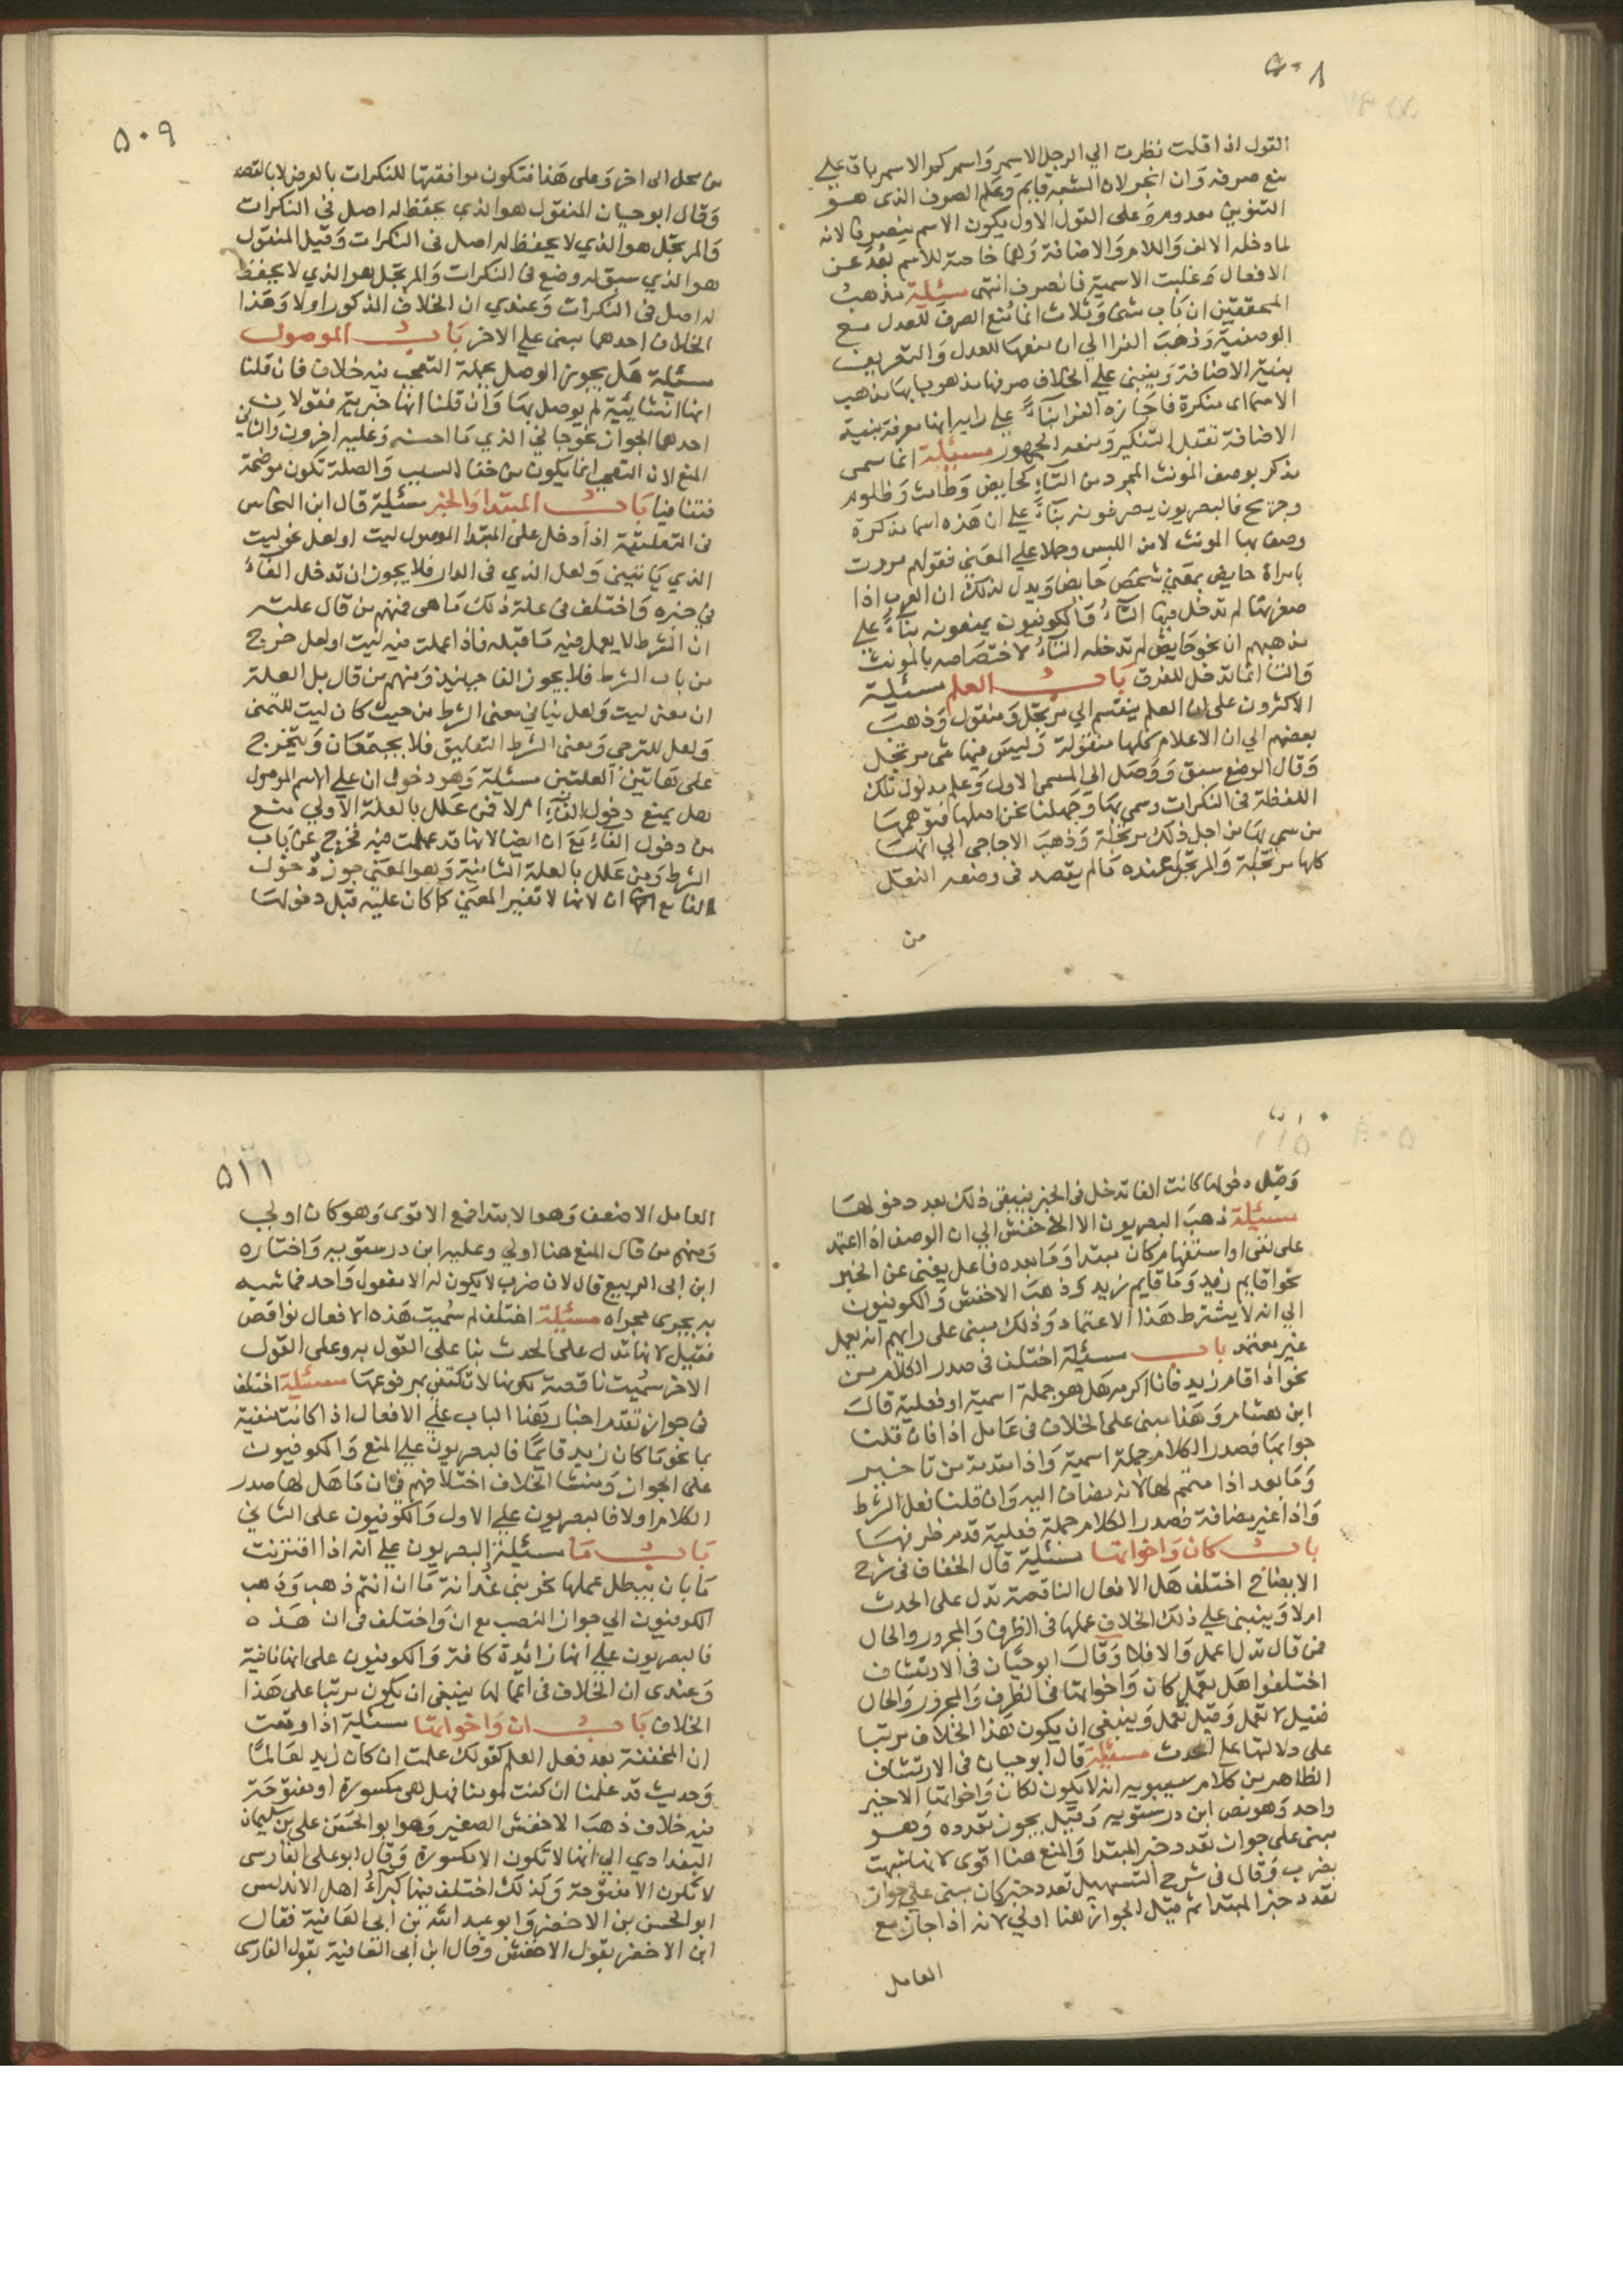 ٥٠٨
القول اذا قلت نظرت الي الرجل الاسمر واسمركم والاسمر باق علي
منع صرفه وان انجر لان الشبه قايم وعلم الصرف الذي هو
التنوين معدوم وعلى القول الاول يكون الاسم ينصرف لانه
لما دخله الالف واللام والاضافة وهما خاصة للاسم بعد عن
الافعال وغلبت الاسمية فانصرف انتهى مسئلة مذهب
المحققين ان باب مثنى وثلاث انما منع الصرف للعدل مع
الوصفية وذهب الفرا الي ان منعها للعدل والتعريف
بنية الاضافة وينبني علي الخلاف صرفها مذهوبا بها مذهب
الاسما اى منكرة فاجازه الفرا بناءً علي رايه انها معرفة بنية
الاضافة تقبل التنكير ومنعه الجمهور مسئلة اذا سمى
مذكر بوصف المونث المجرد من التاء كحايض وطامث وظلوم
وجريح فالبصريون يصرفونه بناءً علي ان هذه اسما مذكرة
وصف بها المونث لامن اللبس وحملا علي المعني فقولهم مررت
بامراة حايض بمعني شخص حايض ويدل لذلك ان العرب اذا
صغرتها لم تدخل فيها التاء والكوفيون يمنعونه بناءً علي
مذهبهم ان نحو حايض لم تدخله التاء لاختصاصه بالمونث
والتا انما تدخل للفرق باب العلم مسئلة
الاكثرون على ان العلم ينقسم الي مرتجل ومنقول وذهب
بعضهم الي ان الاعلام كلها منقولة وليس فيها شى مرتجل
وقال الوضع سبق ووصل الي المسمى الاول وعلم مدلول تلك
اللفظة في النكرات وسمى بها وجهلنا نحن اصلها فتوهمها
من سمى بها من اجل ذلك مرتجلة وذهب الزجاجي الي انها
كلها مرتجلة والمرتجل عنده مالم يقصد فى وضعه النقل
من
٥٠٩
من محل الى اخر وعلى هذا فتكون موافقتها للنكرات بالعرض لا بالقصد
وقال ابو حيان المنقول هو الذي يحفظ له اصل في النكرات
والمرتجل هو الذي لا يحفظ له اصل في النكرات وقيل المنقول
هو الذي سبق له وضع في النكرات والمرتجل هو الذي لا يحفظ
له اصل فى النكرات وعندي ان الخلاف المذكور اولا وهذا
الخلاف احدهما مبنى علي الاخر باب الموصول
مسئلة هل يجوز الوصل بجملة التعجب فيه خلاف فان قلنا
انها انشائية لم يوصل بها وان قلنا انها خبرية فقولان
احدهما الجواز نحو جاني الذي ما احسنه وعليه ابن خروف والثاني
المنع لان التعجب انما يكون من خفا السبب والصلة تكون موضحة
فتنافيا باب المبتدا والخبر مسئلة قال ابن النحاس
فى التعليقة اذا دخل على المبتدا الموصول ليت او لعل نحو ليت
الذي ياتيني ولعل الذي فى الدار فلا يجوز ان تدخل الفاء
في خبره واختلف في علة ذلك ما هى فمنهم من قال علته
ان الشرط لا يعمل فيه ما قبله فاذا عملت فيه ليت او لعل خرج
من باب الشرط فلا يجوز الفا حينئذ ومنهم من قال بل العلة
ان معنى ليت ولعل ينافي معنى الشرط من حيث كان ليت للتمنى
ولعل للترجى ومعنى الشرط التعليق فلا يجتمعان ويتخرج
على هاتين العلتين مسئلة وهو دخول ان علي الاسم الموصول
هل يمنع دخول الفاء ام لا فمن علل بالعلة الاولي منع
من دخول الفاء مع ان ايضا لانها قد عملت فيه فخرج عن باب
الشرط ومن علل بالعلة الثانية وهو المعني جوز دخول
الفا مع ان لانها لا تغير المعني كما كان عليه قبل دخولها
وقبل دخولها كانت الفا تدخل فى الخبر فيبقى ذلك بعد دخولها
مسئلة ذهب البصريون الا الاخفش الي ان الوصف اذا اعتمد
على نفى او استفهام كان مبتدا وما بعده فاعل يغنى عن الخبر
نحو اقايم زيد وما قايم زيد وذهب الاخفش والكوفيون
الي انه لا يشترط هذا الاعتماد وذلك مبنى على رايهم انه يعمل
غير معتمد باب مسئلة اختلف فى صدر الكلام من
نحو اذا قام زيد فانا اكرمه هل هو جملة اسمية او فعلية قال
ابن هشام وهذا مبنى على الخلاف فى عامل اذا فان قلنا
جوابها فصدر الكلام جملة اسمية واذا مقدمة من تاخير
وما بعد اذا متمم لها لانه مضاف اليه وان قلنا فعل الشرط
واذا غير مضافة فصدر الكلام جملة فعلية قدم ظرفها
باب كان واخواتها مسئلة قال الخفاف فى شرح
الايضاح اختلف هل الافعال الناقصة تدل على الحدث
ام لا وينبنى علي ذلك الخلاف عملها فى الظرف والمجرور والحال
فمن قال تدل اعمل والا فلا وقال ابو حيان فى الارتشاف
اختلفوا هل تعمل كان واخواتها في الظرف والمجرور والحال
فقيل لا تعمل وقيل تعمل وينبغى ان يكون هذا الخلاف مرتبا
على دلالتها علي الحدث مسئلة قال ابو حيان فى الارتشاف
الظاهر من كلام سيبويه انه لا يكون لكان واخواتها الا خبر
واحد وهو نص ابن درستويه وقيل يجوز تعدده وهو
مبنى على جواز تعدد خبر المبتدا والمنع هنا اقوى لانها شبهت
بضرب وقال فى شرح التسهيل تعدد خبر كان مبنى علي جواز
تعدد خبر المبتدا ثم قيل الجواز هنا اولي لانه اذا جاز مع
العامل
٥١١
العامل الاضعف وهو الابتدا فمع الاقوى وهو كان اولي
ومنهم من قال المنع هنا اولي وعليه ابن درستويه واختاره
ابن ابى الربيع قال لان ضرب لا يكون له الا مفعول واحد فما شبه
به يجرى مجراه مسئلة اختلف لم سميت هذه الافعال نواقص
فقيل لانها لا تدل على الحدث بنا على القول به وعلى القول
الاخر سميت ناقصة لكونها لا تكتفى بمرفوعها مسئلة اختلف
فى جواز تقدم اخبار هذا الباب علي الافعال اذا كانت منفية
بما نحو ما كان زيد قايما فالبصريون علي المنع والكوفيون
على الجواز ومنشا الخلاف اختلافهم في ان ما هل لها صدر
الكلام اولا فالبصريون علي الاول والكوفيون على الثاني
باب ما مسئلة البصريون علي انه اذا اقترنت
ما بان يبطل عملها نحو بنى غدانة ما ان انتم ذهب وذهب
الكوفيون الي جواز النصب مع ان واختلف فى ان هذه
فالبصريون علي انها زائدة كافة والكوفيون على انها نافية
وعندى ان الخلاف فى اعمالها ينبغى ان يكون مرتبا على هذا
الخلاف باب ان واخواتها مسئلة اذا وقعت
ان المخففة بعد فعل العلم كقولك علمت ان كان زيد لعالما
وحديث قد علمنا ان كنت لمومنا فهل هى مكسورة او مفتوحة
فيه خلاف ذهب الاخفش الصغير وهو ابو الحسن على بن سليمان
البغدادي الي انها لا تكون الا مكسورة وقال ابو على الفارسى
لا تكون الا مفتوحة وكذلك اختلف فيها كبراء اهل الاندلس
ابو الحسن بن الاخضر وابو عبد الله بن ابى العافية فقال
ابن الاخضر بقول الاخفش وقال ابن ابى العافية بقول الفارسى